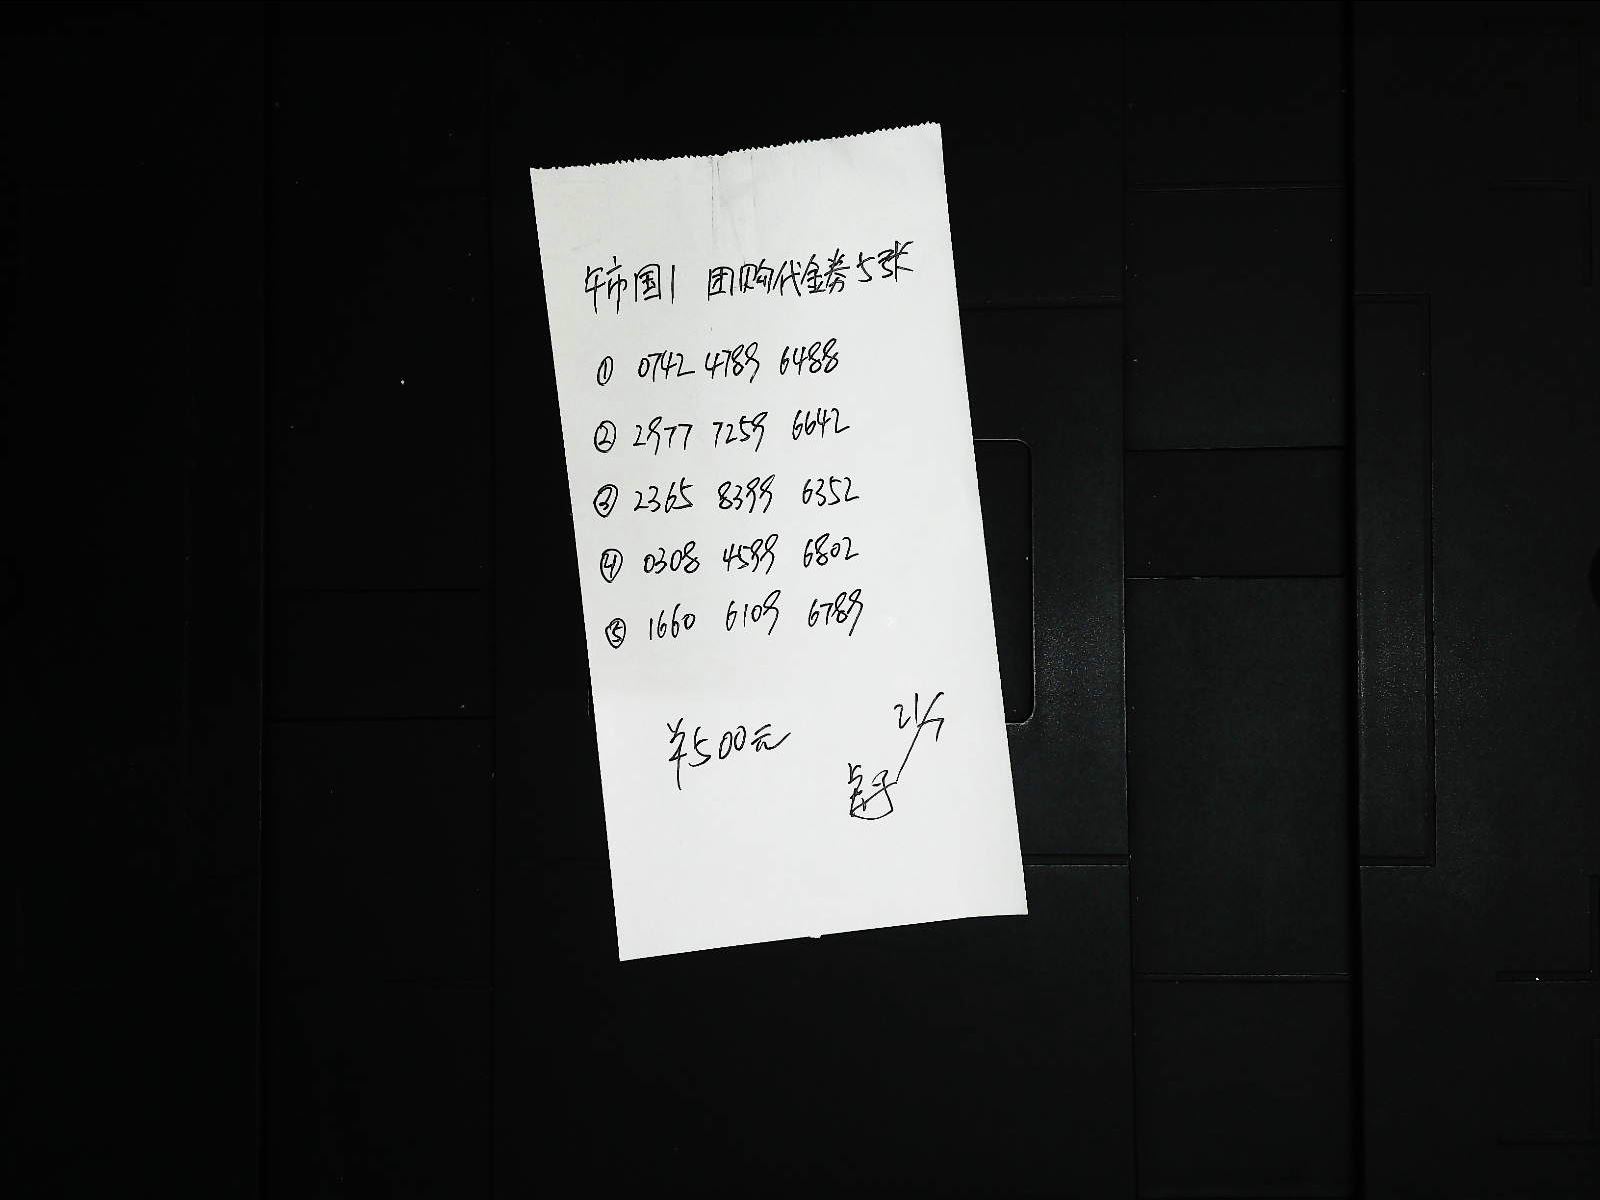 午市国1 团购代金券5张
① 0742 4789 6488
② 2977 7259 6642
③ 2365 8399 6352
④ 0308 4599 6802
⑤ 1660 6109 6789
¥500元
21/5